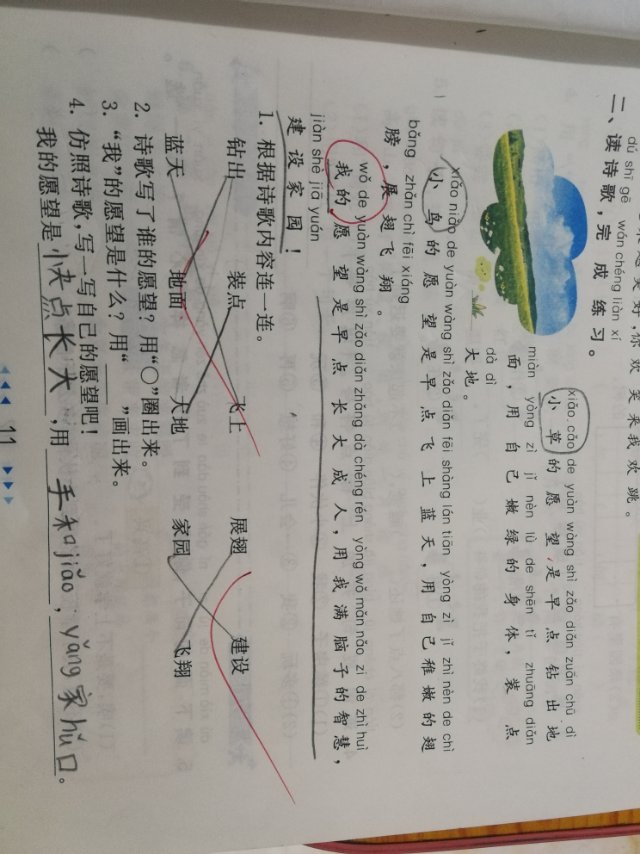 dú shī gē wán chéng liàn xí
二、读诗歌，完成练习。
xiǎo cǎo de yuàn wàng shì zǎo diǎn zuān chū dì
小草的愿望是早点钻出地
miàn yòng zì jǐ nèn lǜ de shēn tǐ zhuāng diǎn
面，用自己嫩绿的身体，装点
dà dì
大地。
xiǎo niǎo de yuàn wàng shì zǎo diǎn fēi shàng lán tiān yòng zì jǐ zhì nèn de chì
小鸟的愿望是早点飞上蓝天，用自己稚嫩的翅
bǎng zhǎn chì fēi xiáng
膀，展翅飞翔。
wǒ de yuàn wàng shì zǎo diǎn zhǎng dà chéng rén yòng wǒ mǎn nǎo zi de zhì huì
我的愿望是早点长大成人，用我满脑子的智慧，
jiàn shè jiā yuán
建设家园！
1. 根据诗歌内容连一连。
钻出 装点 飞上 展翅 建设
蓝天 地面 大地 家园 飞翔
2. 诗歌写了谁的愿望？用“○”圈出来。
3. “我”的愿望是什么？用“____”画出来。
4. 仿照诗歌，写一写自己的愿望吧！
我的愿望是小夬点长大，用手和jiǎo，yǎng家hú口。
11